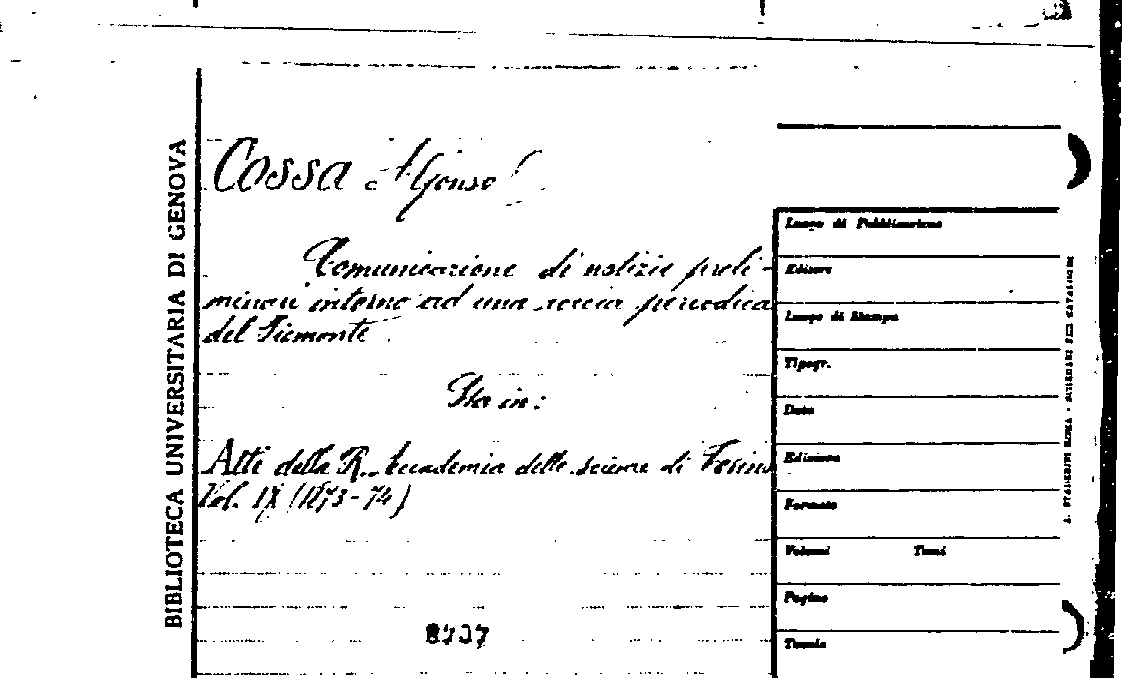 BIBLIOTECA UNIVERSITARIA DI GENOVA
Cossa Alfonso
Comunicazione di notizie preli-
minari intorno ad una roccia periodica
del Piemonte
Sta in:
Atti della R. Accademia delle scienze di Torino
Vol. IX (1873-74)
8707
Luogo di Pubblicazione
Editore
Luogo di Stampa
Tipogr.
Data
Edizione
Formato
Volumi Tomi
Pagine
Tavole